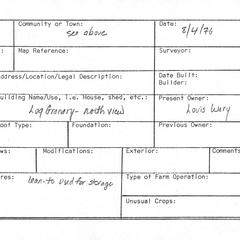 Community or Town:
see above
Date:
8/4/76
Map Reference:
Surveyor:
ddress/Location/Legal Description:
Date Built:
Builder:
uilding Name/Use, i.e. House, shed, etc.:
Log Granary - north view
Present Owner:
Louis Wery
oof Type:
Foundation:
Previous Owner:
ws:
Modifications:
Exterior:
Comments
res:
lean-to used for storage
Type of Farm Operation:
Unusual Crops: